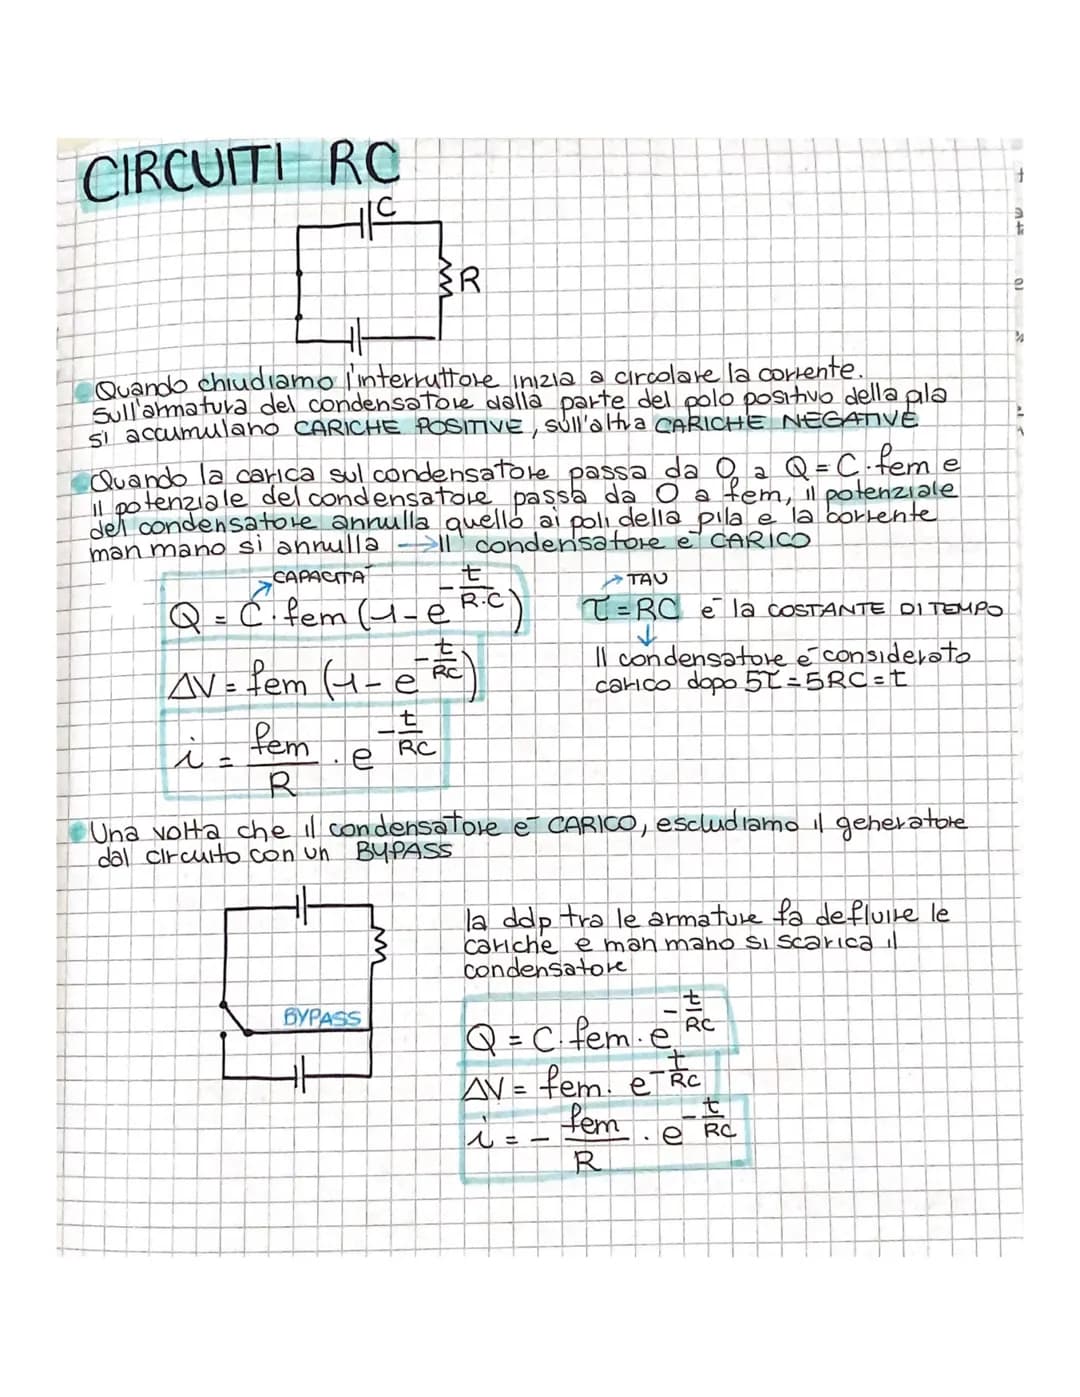 CIRCUITI RC
C
R
Quando chiudiamo l'interruttore inizia a circolare la corrente.
Sull'armatura del condensatore dalla parte del polo positivo della pila
si accumulano CARICHE POSITIVE, sull'altra CARICHE NEGATIVE
Quando la carica sul condensatore passa da 0 a Q=C·fem e
il potenziale del condensatore passa da 0 a fem, il potenziale
del condensatore annulla quello ai poli della pila e la corrente
man mano si annulla → Il condensatore è CARICO
CAPACITÀ
Q = C·fem (1-e^-t/R·C)
TAU
τ=RC è la COSTANTE DI TEMPO
Il condensatore è considerato
carico dopo 5τ=5RC=t
ΔV = fem (1-e^-t/RC)
i = fem/R · e^-t/RC
Una volta che il condensatore è CARICO, escludiamo il generatore
dal circuito con un BYPASS
BYPASS
la ddp tra le armature fa defluire le
cariche e man mano si scarica il
condensatore
Q = C·fem·e^-t/RC
ΔV = fem·e^-t/RC
i = - fem/R · e^-t/RC